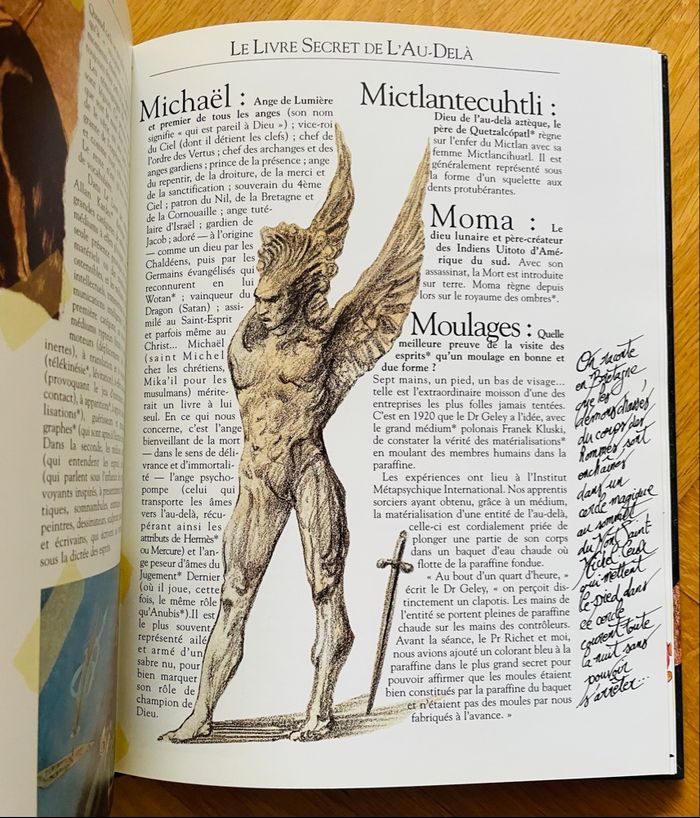 inertes), à
(télékinésie
(provoquant
contact), à
Dans la seconde, les médiums
(qui entendent les
(qui parlent sous l'influence
voyants inspirés, à
tiques, somnambules,
peintres, dessinateurs,
et écrivains, qui écrivent
sous la dictée des esprits
LE LIVRE SECRET DE L'AU-DELÀ
Michaël : Ange de Lumière
et premier de tous les anges (son nom
signifie « qui est pareil à Dieu ») ; vice-roi
du Ciel (dont il détient les clefs) ; chef de
l'ordre des Vertus ; chef des archanges et des
anges gardiens ; prince de la présence ; ange
du repentir, de la droiture, de la merci et
de la sanctification ; souverain du 4ème
Ciel ; patron du Nil, de la Bretagne et
de la Cornouaille ; ange tuté-
laire d'Israël ; gardien de
Jacob ; adoré — à l'origine
— comme un dieu par les
Chaldéens, puis par les
Germains évangélisés qui
reconnurent en lui
Wotan* ; vainqueur du
Dragon (Satan) ; assi-
milé au Saint-Esprit
et parfois même au
Christ... Michaël
(saint Michel
chez les chrétiens,
Mika'il pour les
musulmans) mérite-
rait un livre à lui
seul. En ce qui nous
concerne, c'est l'ange
bienveillant de la mort
— dans le sens de déli-
vrance et d'immortali-
té — l'ange psycho-
pompe (celui qui
transporte les âmes
vers l'au-delà, récu-
pérant ainsi les
attributs de Hermès*
ou Mercure) et l'an-
ge peseur d'âmes du
Jugement* Dernier
(où il joue, cette
fois, le même rôle
qu'Anubis*).Il est
le plus souvent
représenté ailé
et armé d'un
sabre nu, pour
bien marquer
son rôle de
champion de
Dieu.
Mictlantecuhtli :
Dieu de l'au-delà aztèque, le
père de Quetzalcópatl* règne
sur l'enfer du Mictlan avec sa
femme Mictlancihuatl. Il est
généralement représenté sous
la forme d'un squelette aux
dents protubérantes.
Moma : Le
dieu lunaire et père-créateur
des Indiens Uitoto d'Amé-
rique du sud. Avec son
assassinat, la Mort est introduite
sur terre. Moma règne depuis
lors sur le royaume des ombres*.
Moulages : Quelle
meilleure preuve de la visite des
esprits* qu'un moulage en bonne et
due forme ?
Sept mains, un pied, un bas de visage...
telle est l'extraordinaire moisson d'une des
entreprises les plus folles jamais tentées.
C'est en 1920 que le Dr Geley a l'idée, avec
le grand médium* polonais Franek Kluski,
de constater la vérité des matérialisations*
en moulant des membres humains dans la
paraffine.
Les expériences ont lieu à l'Institut
Métapsychique International. Nos apprentis
sorciers ayant obtenu, grâce à un médium,
la matérialisation d'une entité de l'au-delà,
celle-ci est cordialement priée de
plonger une partie de son corps
dans un baquet d'eau chaude où
flotte de la paraffine fondue.
« Au bout d'un quart d'heure, »
écrit le Dr Geley, « on perçoit dis-
tinctement un clapotis. Les mains de
l'entité se portent pleines de paraffine
chaude sur les mains des contrôleurs.
Avant la séance, le Pr Richet et moi,
nous avions ajouté un colorant bleu à la
paraffine dans le plus grand secret pour
pouvoir affirmer que les moules étaient
bien constitués par la paraffine du baquet
et n'étaient pas des moules par nous
fabriqués à l'avance. »
On raconte
en Bretagne
que les
démons chassés
du corps des
hommes sont
enchaînés
dans un
cercle magique
au sommet
du Mont Saint
Michel Ceux
qui mettent
le pied dans
ce cercle
courent toute
la nuit sans
pouvoir
s'arrêter...